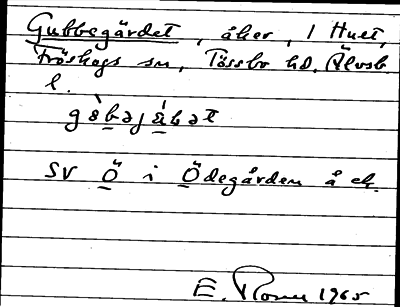 Gubbegärdet, åker, 1 Hult,
Fröskogs sn, Tössbo hd, Älvsb
l.
SV Ö i Ödegården å ek.
E. Rosen 1965